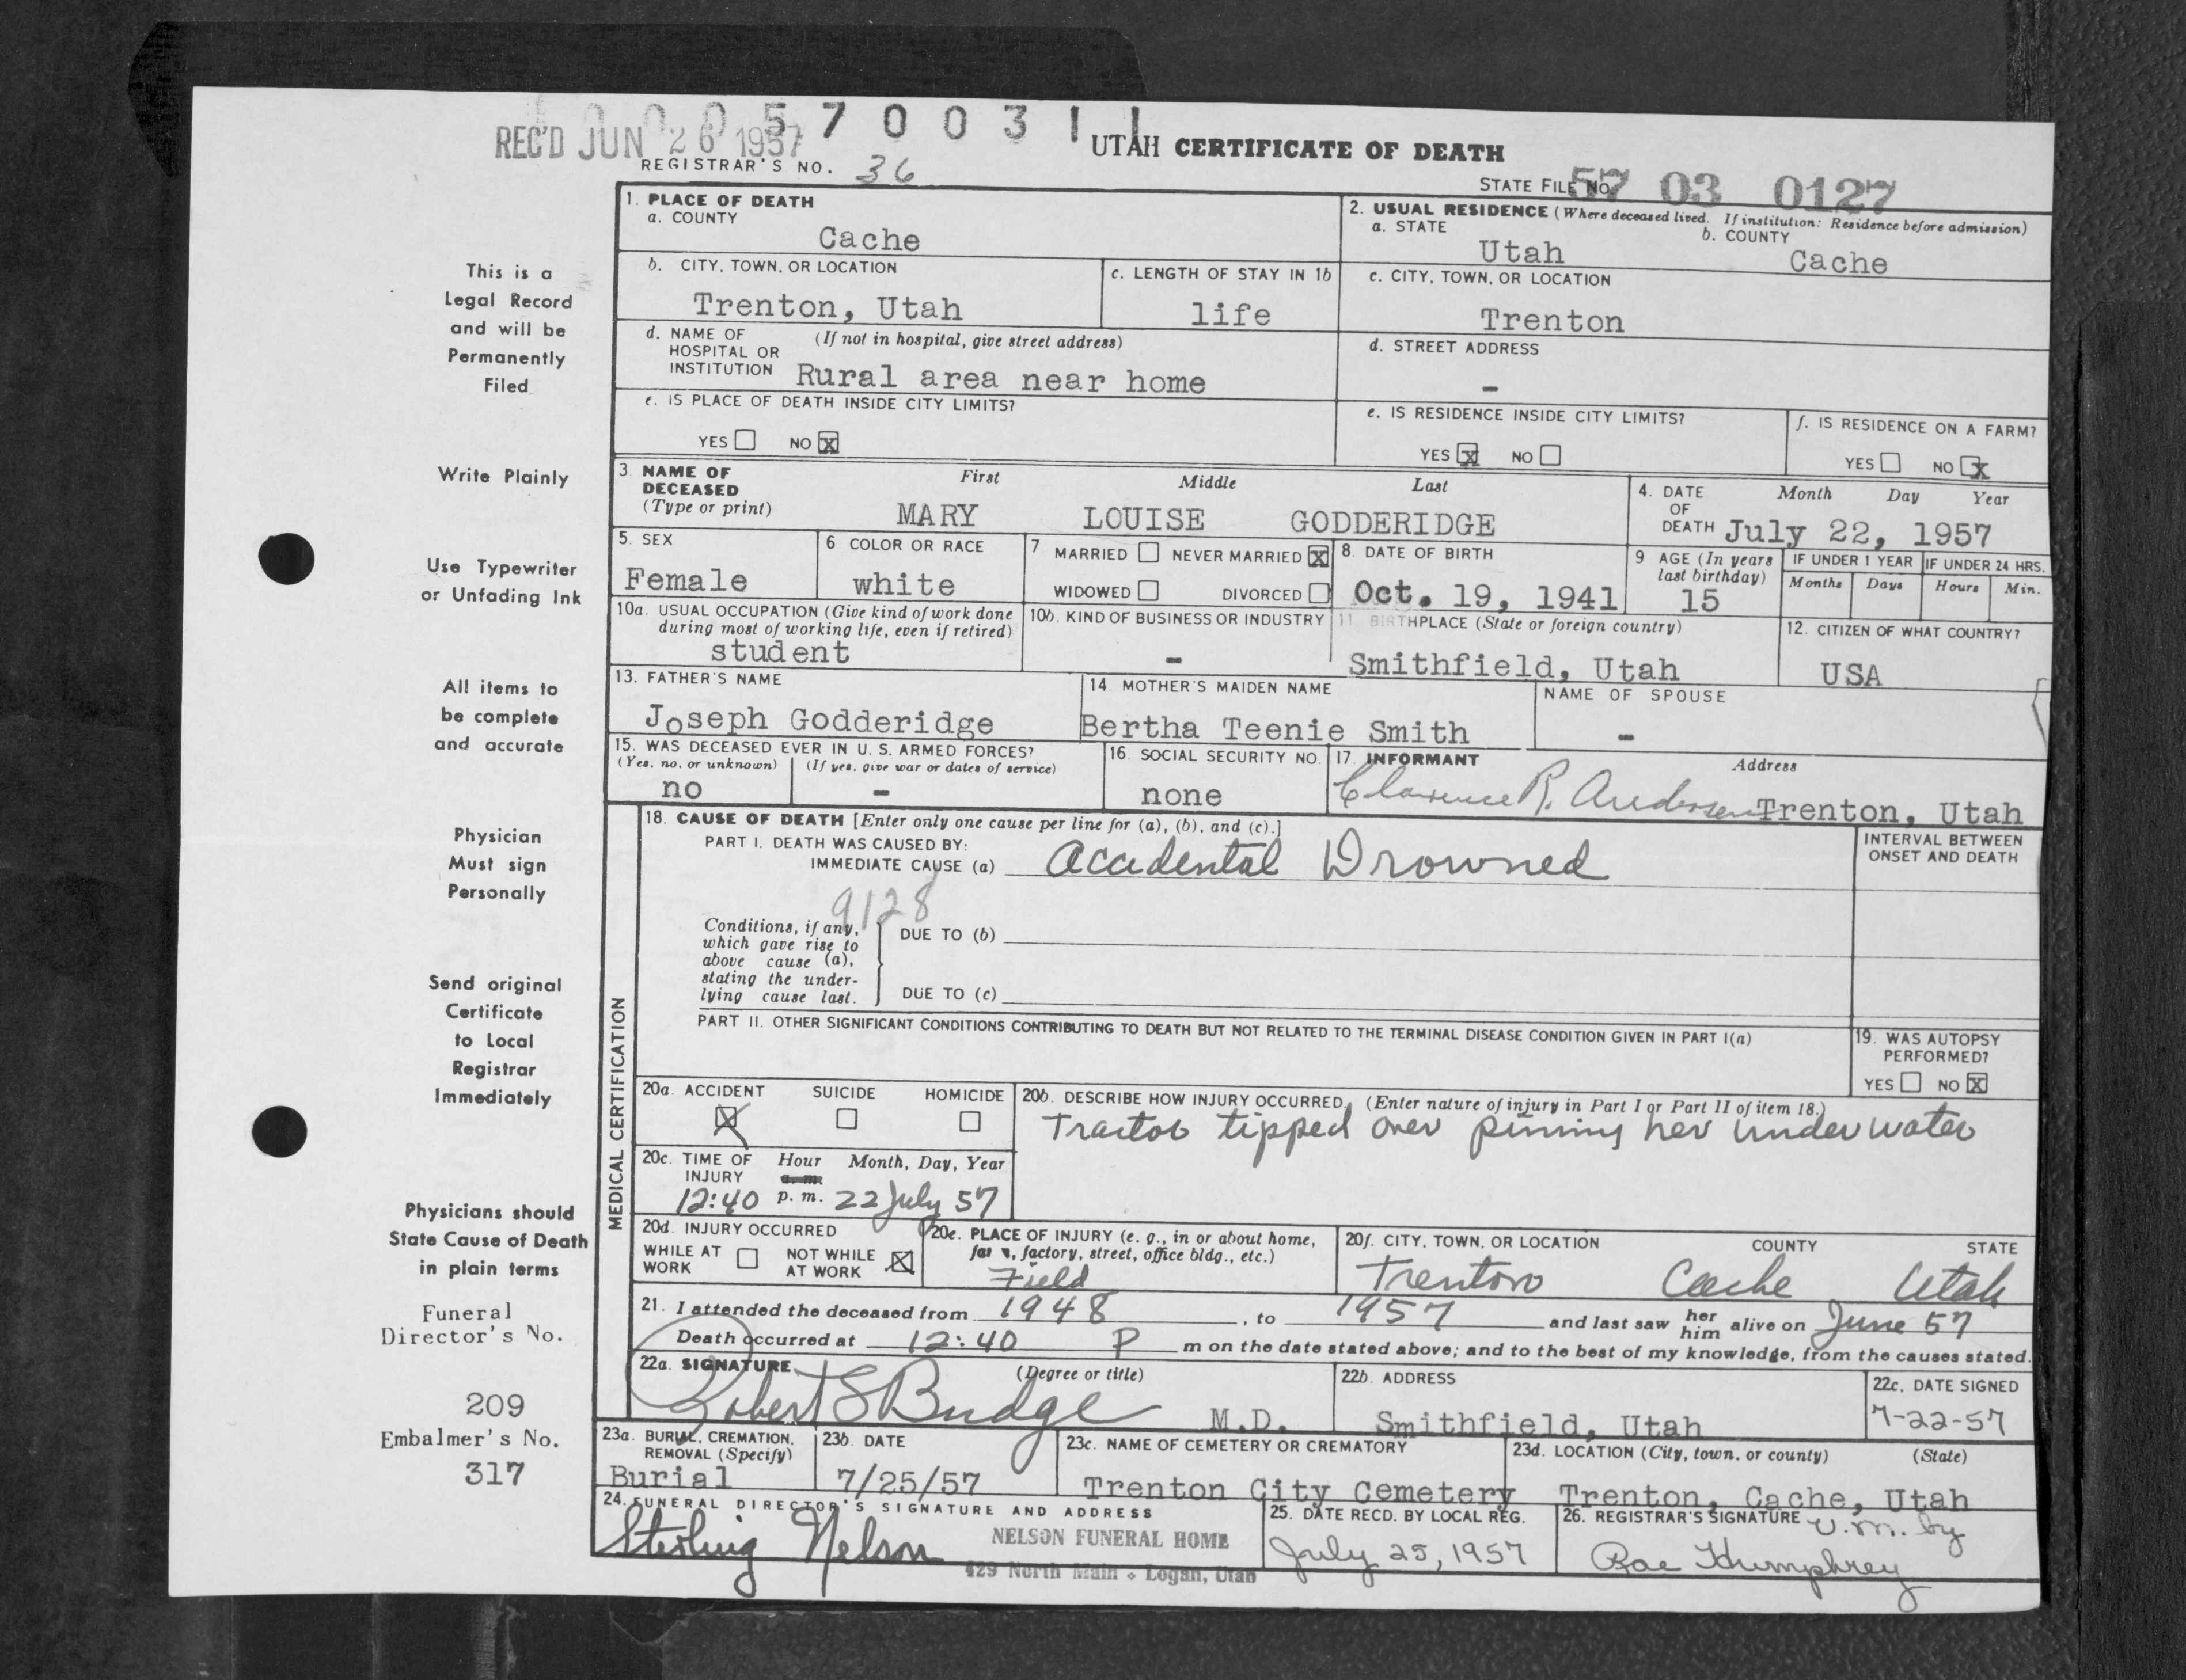 1 0 0 5 7 0 0 3 1 1
REC'D JUN 26 1957
UTAH CERTIFICATE OF DEATH
REGISTRAR'S NO. 36
STATE FILE NO. 57 03 0127
1. PLACE OF DEATH
a. COUNTY
Cache
2. USUAL RESIDENCE (Where deceased lived. If institution: Residence before admission)
a. STATE
Utah
b. COUNTY
Cache
b. CITY, TOWN, OR LOCATION
Trenton, Utah
c. LENGTH OF STAY IN 1b
life
c. CITY, TOWN, OR LOCATION
Trenton
d. NAME OF HOSPITAL OR INSTITUTION (If not in hospital, give street address)
Rural area near home
d. STREET ADDRESS
-
e. IS PLACE OF DEATH INSIDE CITY LIMITS?
YES NO X
e. IS RESIDENCE INSIDE CITY LIMITS?
YES X NO
f. IS RESIDENCE ON A FARM?
YES NO X
3. NAME OF DECEASED (Type or print)
First Middle Last
MARY LOUISE GODDERIDGE
4. DATE OF DEATH Month Day Year
July 22, 1957
5. SEX
Female
6 COLOR OR RACE
white
7 MARRIED NEVER MARRIED X
WIDOWED DIVORCED
8. DATE OF BIRTH
Oct. 19, 1941
9 AGE (In years last birthday)
15
IF UNDER 1 YEAR
Months Days
IF UNDER 24 HRS.
Hours Min.
10a. USUAL OCCUPATION (Give kind of work done during most of working life, even if retired)
student
10b. KIND OF BUSINESS OR INDUSTRY
-
11. BIRTHPLACE (State or foreign country)
Smithfield, Utah
12. CITIZEN OF WHAT COUNTRY?
USA
13. FATHER'S NAME
Joseph Godderidge
14. MOTHER'S MAIDEN NAME
Bertha Teenie Smith
NAME OF SPOUSE
-
15. WAS DECEASED EVER IN U. S. ARMED FORCES?
(Yes, no, or unknown) (If yes, give war or dates of service)
no -
16. SOCIAL SECURITY NO.
none
17. INFORMANT Address
Clarence R. Andersen Trenton, Utah
MEDICAL CERTIFICATION
18. CAUSE OF DEATH [Enter only one cause per line for (a), (b), and (c).]
PART I. DEATH WAS CAUSED BY:
IMMEDIATE CAUSE (a) Accidental Drowned
INTERVAL BETWEEN ONSET AND DEATH
9128
Conditions, if any, which gave rise to above cause (a), stating the underlying cause last.
DUE TO (b)
DUE TO (c)
PART II. OTHER SIGNIFICANT CONDITIONS CONTRIBUTING TO DEATH BUT NOT RELATED TO THE TERMINAL DISEASE CONDITION GIVEN IN PART I(a)
19. WAS AUTOPSY PERFORMED?
YES NO X
20a. ACCIDENT SUICIDE HOMICIDE
X
20b. DESCRIBE HOW INJURY OCCURRED. (Enter nature of injury in Part I or Part II of item 18.)
Tractor tipped over pinning her under water
20c. TIME OF INJURY Hour Month, Day, Year
a. m.
12:40 p. m. 22 July 57
20d. INJURY OCCURRED
WHILE AT WORK NOT WHILE AT WORK X
20e. PLACE OF INJURY (e. g., in or about home, farm, factory, street, office bldg., etc.)
Field
20f. CITY, TOWN, OR LOCATION COUNTY STATE
Trenton Cache Utah
21. I attended the deceased from 1948, to 1957 and last saw her him alive on June 57
Death occurred at 12:40 P m on the date stated above; and to the best of my knowledge, from the causes stated.
22a. SIGNATURE (Degree or title)
Robert S Budge M.D.
22b. ADDRESS
Smithfield, Utah
22c. DATE SIGNED
7-22-57
23a. BURIAL, CREMATION, REMOVAL (Specify)
Burial
23b. DATE
7/25/57
23c. NAME OF CEMETERY OR CREMATORY
Trenton City Cemetery
23d. LOCATION (City, town, or county) (State)
Trenton, Cache, Utah
24. FUNERAL DIRECTOR'S SIGNATURE AND ADDRESS
Sterling Nelson
NELSON FUNERAL HOME
429 North Main Logan, Utah
25. DATE RECD. BY LOCAL REG.
July 25, 1957
26. REGISTRAR'S SIGNATURE
V.M. by
Rae Humphrey
This is a
Legal Record
and will be
Permanently
Filed
Write Plainly
Use Typewriter
or Unfading Ink
All items to
be complete
and accurate
Physician
Must sign
Personally
Send original
Certificate
to Local
Registrar
Immediately
Physicians should
State Cause of Death
in plain terms
Funeral
Director's No.
209
Embalmer's No.
317